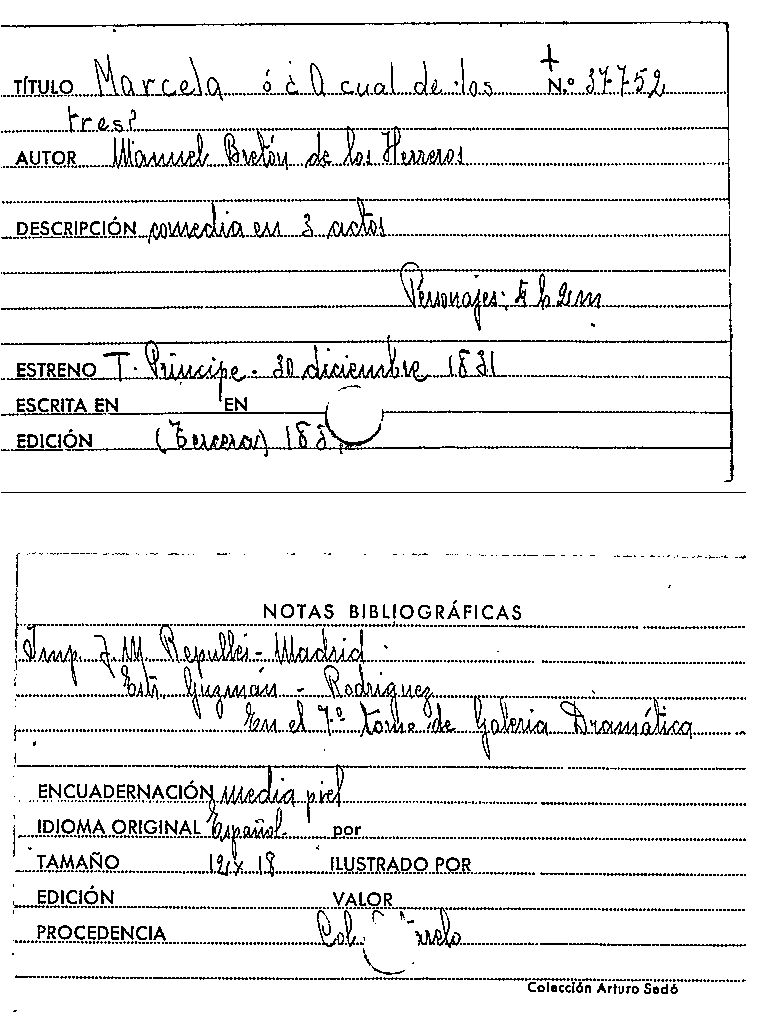 TÍTULO Marcela ó ¿A cual de los N.º 37752
tres?
AUTOR Manuel Bretón de los Herreros
DESCRIPCIÓN comedia en 3 actos
Personajes: 5 h 2 m
ESTRENO T. Príncipe - 30 diciembre 1831
ESCRITA EN EN
EDICIÓN (Tercera) 183
NOTAS BIBLIOGRÁFICAS
Imp. J. M. Repullés - Madrid
Estr. Guzmán - Rodriguez
En el 7.º tomo de Galeria Dramática
ENCUADERNACIÓN media piel
IDIOMA ORIGINAL Español por
TAMAÑO 12 x 18 ILUSTRADO POR
EDICIÓN VALOR
PROCEDENCIA
Colección Arturo Sedó